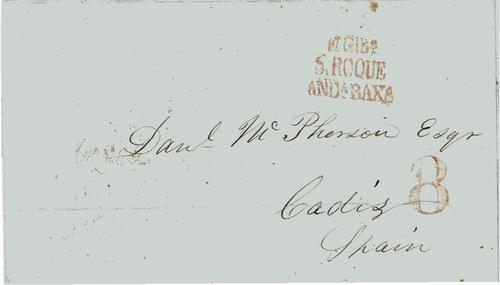 S. ROQUE
ANDA BAXA
Danl Mc Pherson Esqr
Cadiz
8
Spain